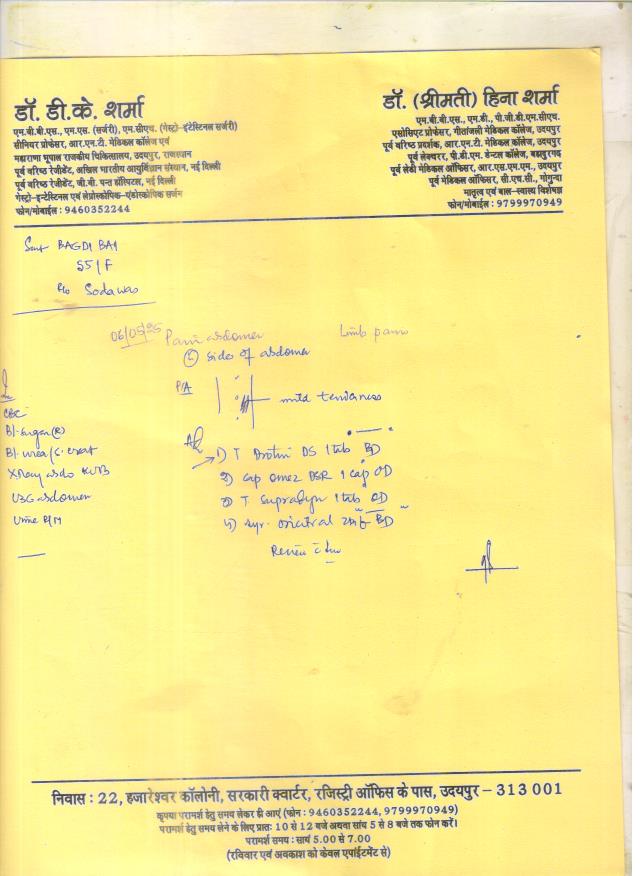 डॉ. डी.के. शर्मा
एम.बी.बी.एस., एम.एस. (सर्जरी), एम.सीएच. (गेस्ट्रो-इंटेस्टिनल सर्जरी)
सीनियर प्रोफेसर, आर.एन.टी. मेडिकल कॉलेज एवं
महाराणा भूपाल राजकीय चिकित्सालय, उदयपुर, राजस्थान
पूर्व वरिष्ठ रेजीडेंट, अखिल भारतीय आयुर्विज्ञान संस्थान, नई दिल्ली
पूर्व वरिष्ठ रेजीडेंट, जी.बी. पन्त हॉस्पिटल, नई दिल्ली
गेस्ट्रो-इन्टेस्टिनल एवं लेप्रोस्कोपिक-एंडोस्कोपिक सर्जन
फोन/मोबाईल : 9460352244
डॉ. (श्रीमती) हिना शर्मा
एम.बी.बी.एस., एम.डी., पी.जी.डी.एम.सीएच.
एसोसिएट प्रोफेसर, गीतांजली मेडिकल कॉलेज, उदयपुर
पूर्व वरिष्ठ प्रदर्शक, आर.एन.टी. मेडिकल कॉलेज, उदयपुर
पूर्व लेक्चरर, पी.डी.एम. डेन्टल कॉलेज, बहादुरगढ़
पूर्व लेडी मेडिकल ऑफिसर, आर.एस.एम.एम., उदयपुर
पूर्व मेडिकल ऑफिसर, सी.एच.सी., गोगुन्दा
मातृत्व एवं बाल-स्वास्थ्य विशेषज्ञ
फोन/मोबाईल : 9799970949
Smt BAGDI BAI
55/F
R/o Sodawas
06/05/25 Pain abdomen Limb pain
sides of abdomen
P/A mild tenderness
CBC
Bl. Sugar (R)
Bl. urea/S. creat
X Ray abdo KUB
USG abdomen
Urine R/M
1) T Drotin DS 1 tab BD
2) Cap Omez DSR 1 cap OD
3) T Supradyn 1 tab OD
4) Syr. BD
Review
निवास : 22, हजारेश्वर कॉलोनी, सरकारी क्वार्टर, रजिस्ट्री ऑफिस के पास, उदयपुर - 313 001
कृपया परामर्श हेतु समय लेकर ही आएं (फोन : 9460352244, 9799970949)
परामर्श हेतु समय लेने के लिए प्रातः 10 से 12 बजे अथवा सांय 5 से 8 बजे तक फोन करें।
परामर्श समय : सायं 5.00 से 7.00
(रविवार एवं अवकाश को केवल एपाईंटमेंट से)